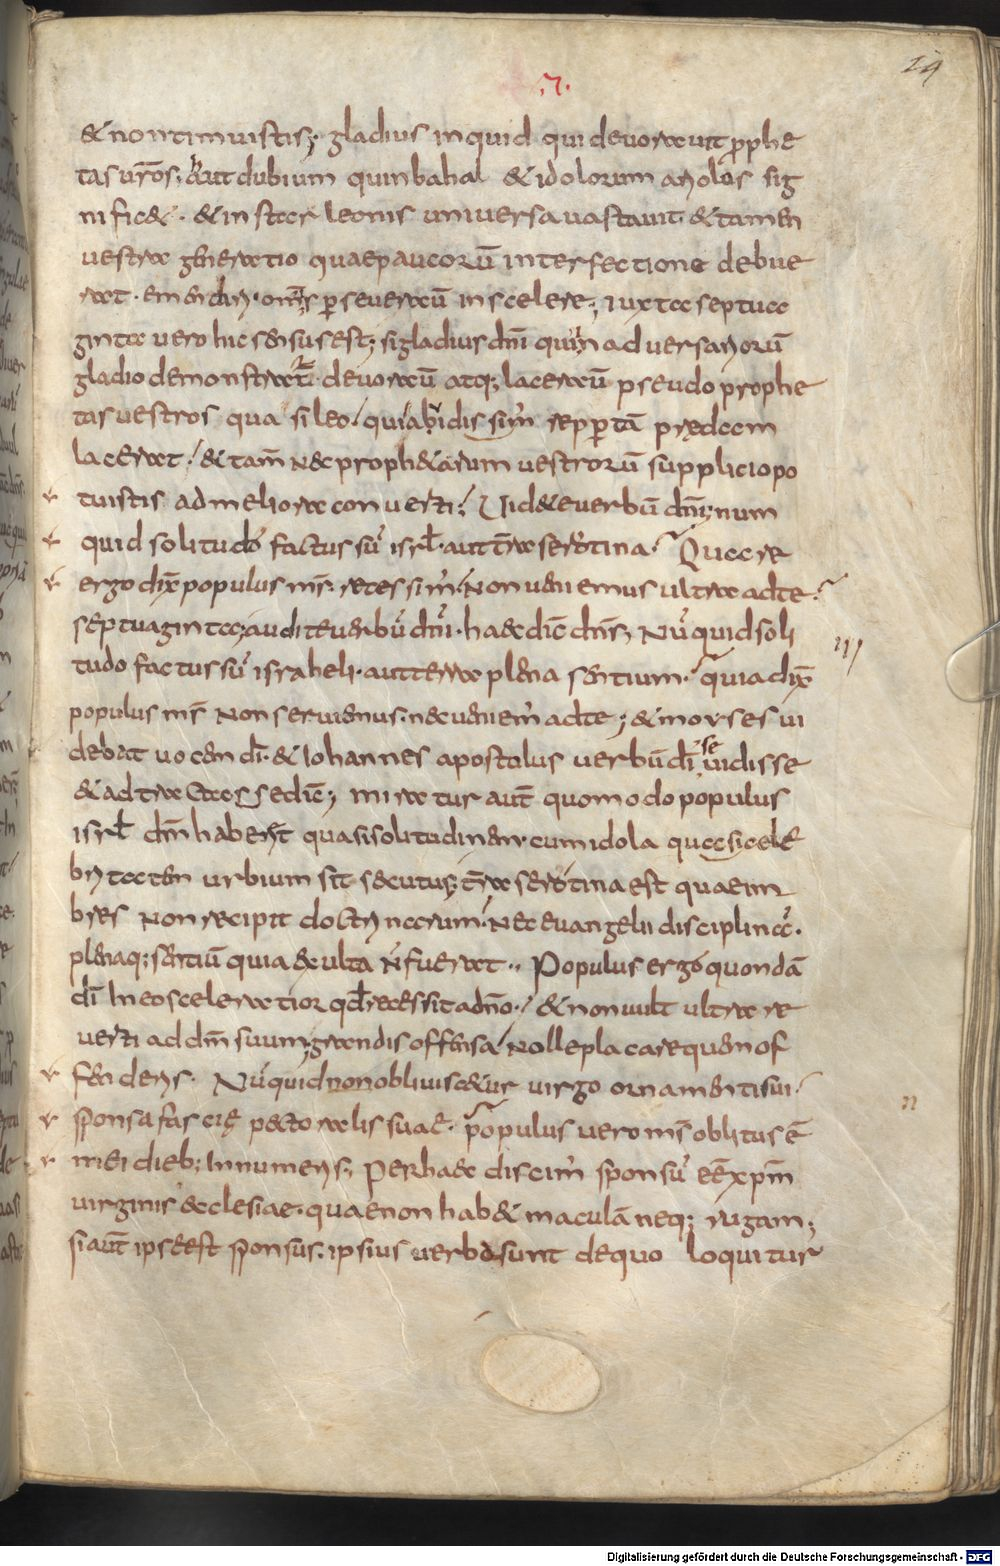 29
.7.
& non timuistis; gladius inquid qui deuorauit pphe
tas uros. haut dubium quin bahal & idolorum ariolos sig
nific&. & instar leonis uniuersa uastauit. & tamen
uestra generatio quae paucorū interfectione debue
rat. emendari. oms pseuerarū in scelere; iuxta septua
ginta uero hic sensus est; si gladius dni quin aduersariorū
gladio demonstratur. deuorarū atq; lacerarū pseudo prophe
tas uestros quasi leo. qui abidis simˀ reppertā praedam
lacerat. & tam nec proph&arum uestrorū supplicio po
tuistis ad meliora conuerti. Uid&e uerbū dni; num
quid solitudo factus sū isrl. aut tra serotina. Quare
ergo dix populus ms. recessimˀ. Non ueniemus ultra ad te.
septuaginta; audite uerbū dni. haec dic dns; Nūquid soli
tudo factus sū israheli. aut terra plena sentium. quia dix
populus ms Non seruiemus. nec ueniemˀ ad te; & moyses ui
debat uocem di. & Iohannes apostolus uerbū di se uidisse
& adtractasse dic; miratur aut quomodo populus
isrl dm habens quasi solitudinem. cum idola quasi cele
britatem urbium sit secutus; tra serotina est quae im
bres Non recipit doctrinarum. Nec euangelii disciplina.
plenaq; sentiū quia exculta n fuerat. Populus ergo quondā
di In eo sceleratior qd recessit a dno. & non uult ultra re
uerti ad dm suum; grandis offensa Nolle placare quem of
fenderis. Nūquid non obliuisc&ur uirgo ornamenti sui.
sponsa fascię pectoralis suae. populus uero ms oblitus ē
mei dieb; Innumeris; Per haec discimˀ sponsū eē xpm
uirginis aecclesiae. quae non hab& maculā neq; rugam;
si aut ipse est sponsus. ipsius uerba sunt de quo loquitur
Digitalisierung gefördert durch die Deutsche Forschungsgemeinschaft - DFG